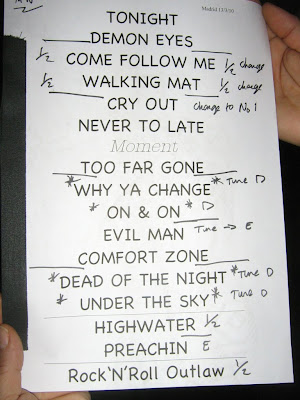 Madrid 11/3/10
TONIGHT
DEMON EYES
1/2 COME FOLLOW ME 1/2 change
1/2 WALKING MAT 1/2 change
CRY OUT change to No 1
NEVER TO LATE
Moment
TOO FAR GONE
* WHY YA CHANGE * Tune D
* ON & ON * D
EVIL MAN Tune → E
COMFORT ZONE
* DEAD OF THE NIGHT * Tune D
* UNDER THE SKY * Tune D
HIGHWATER 1/2
PREACHIN E
Rock'N'Roll Outlaw 1/2